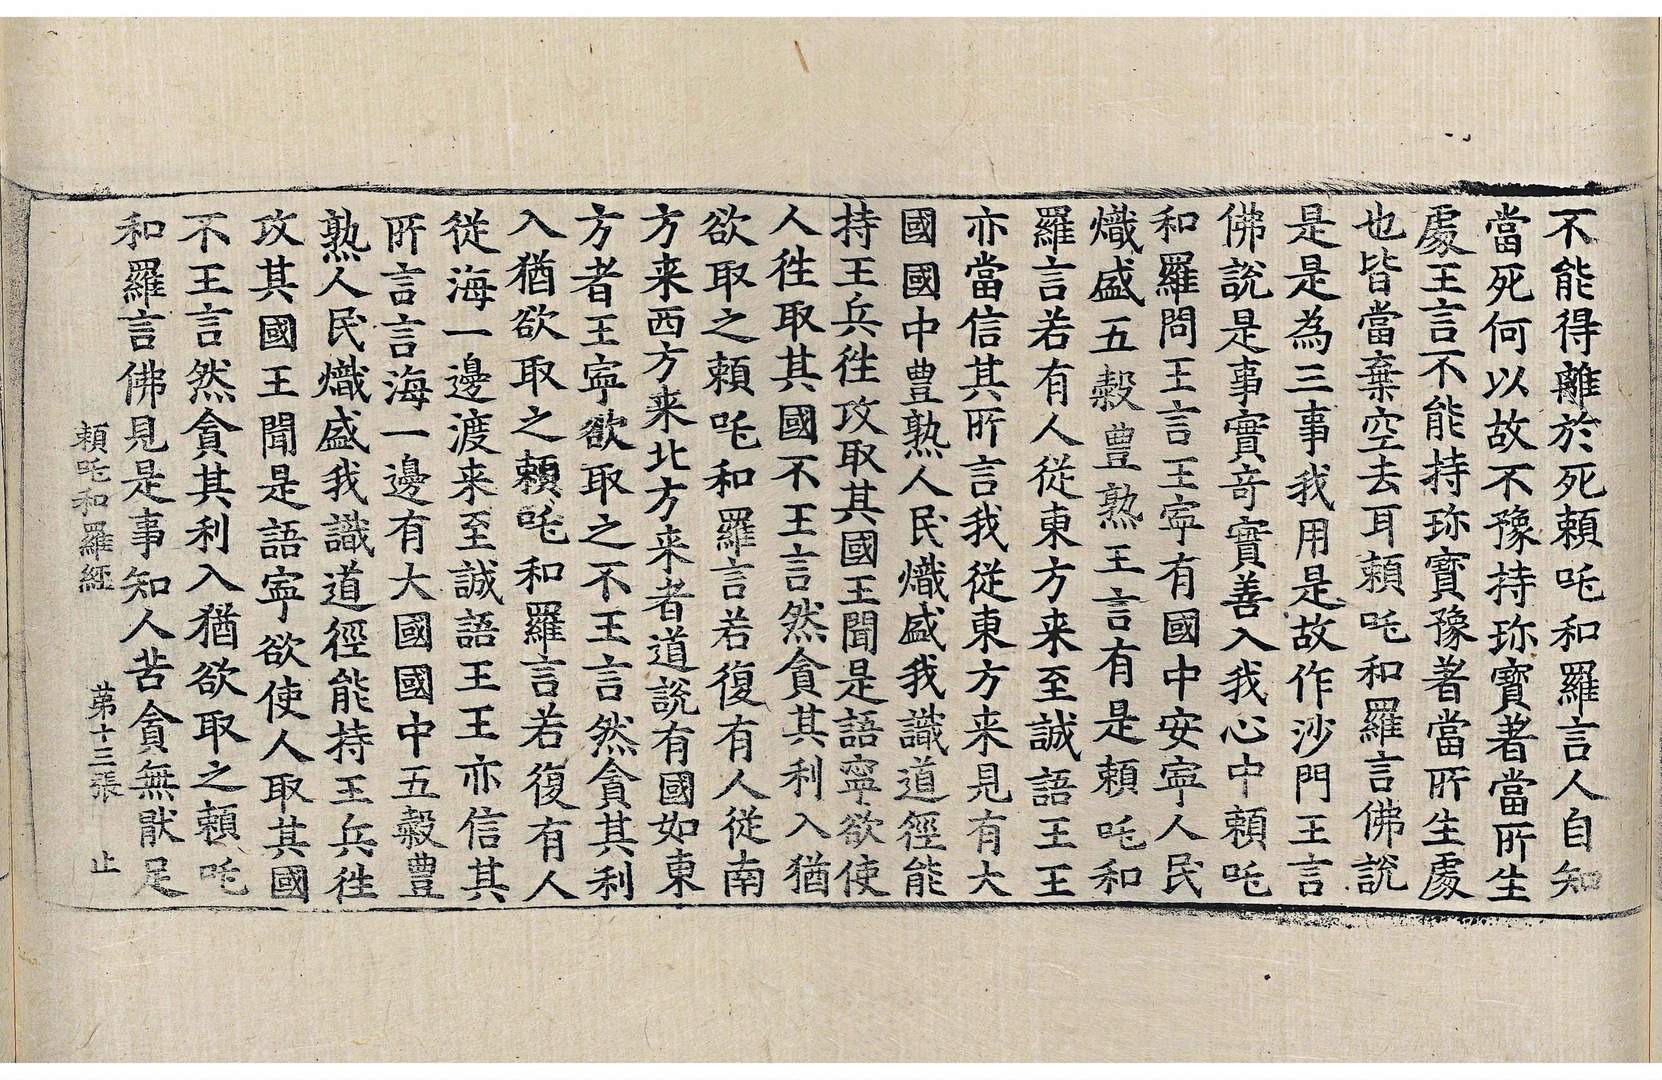 不能得離於死頼吒和羅言人自知
當死何以故不豫持珎寶著當所生
處王言不能持珎寶豫著當所生處
也皆當棄空去耳頼吒和羅言佛說
是是為三事我用是故作沙門王言
佛說是事實竒實善入我心中頼吒
和羅問王言王寧有國中安寧人民
熾盛五穀豊熟王言有是頼吒和
羅言若有人從東方来至誠語王王
亦當信其所言我從東方来見有大
國國中豊熟人民熾盛我識道徑能
持王兵徃攻取其國王聞是語寧欲使
人徃取其國不王言然貪其利入猶
欲取之頼吒和羅言若復有人從南
方来西方来北方来者道說有國如東
方者王寧欲取之不王言然貪其利
入猶欲取之頼吒和羅言若復有人
從海一邊渡来至誠語王王亦信其
所言言海一邊有大國國中五穀豊
熟人民熾盛我識道徑能持王兵徃
攻其國王聞是語寧欲使人取其國
不王言然貪其利入猶欲取之頼吒
和羅言佛見是事知人苦貪無猒足
頼吒和羅經　第十三張　止